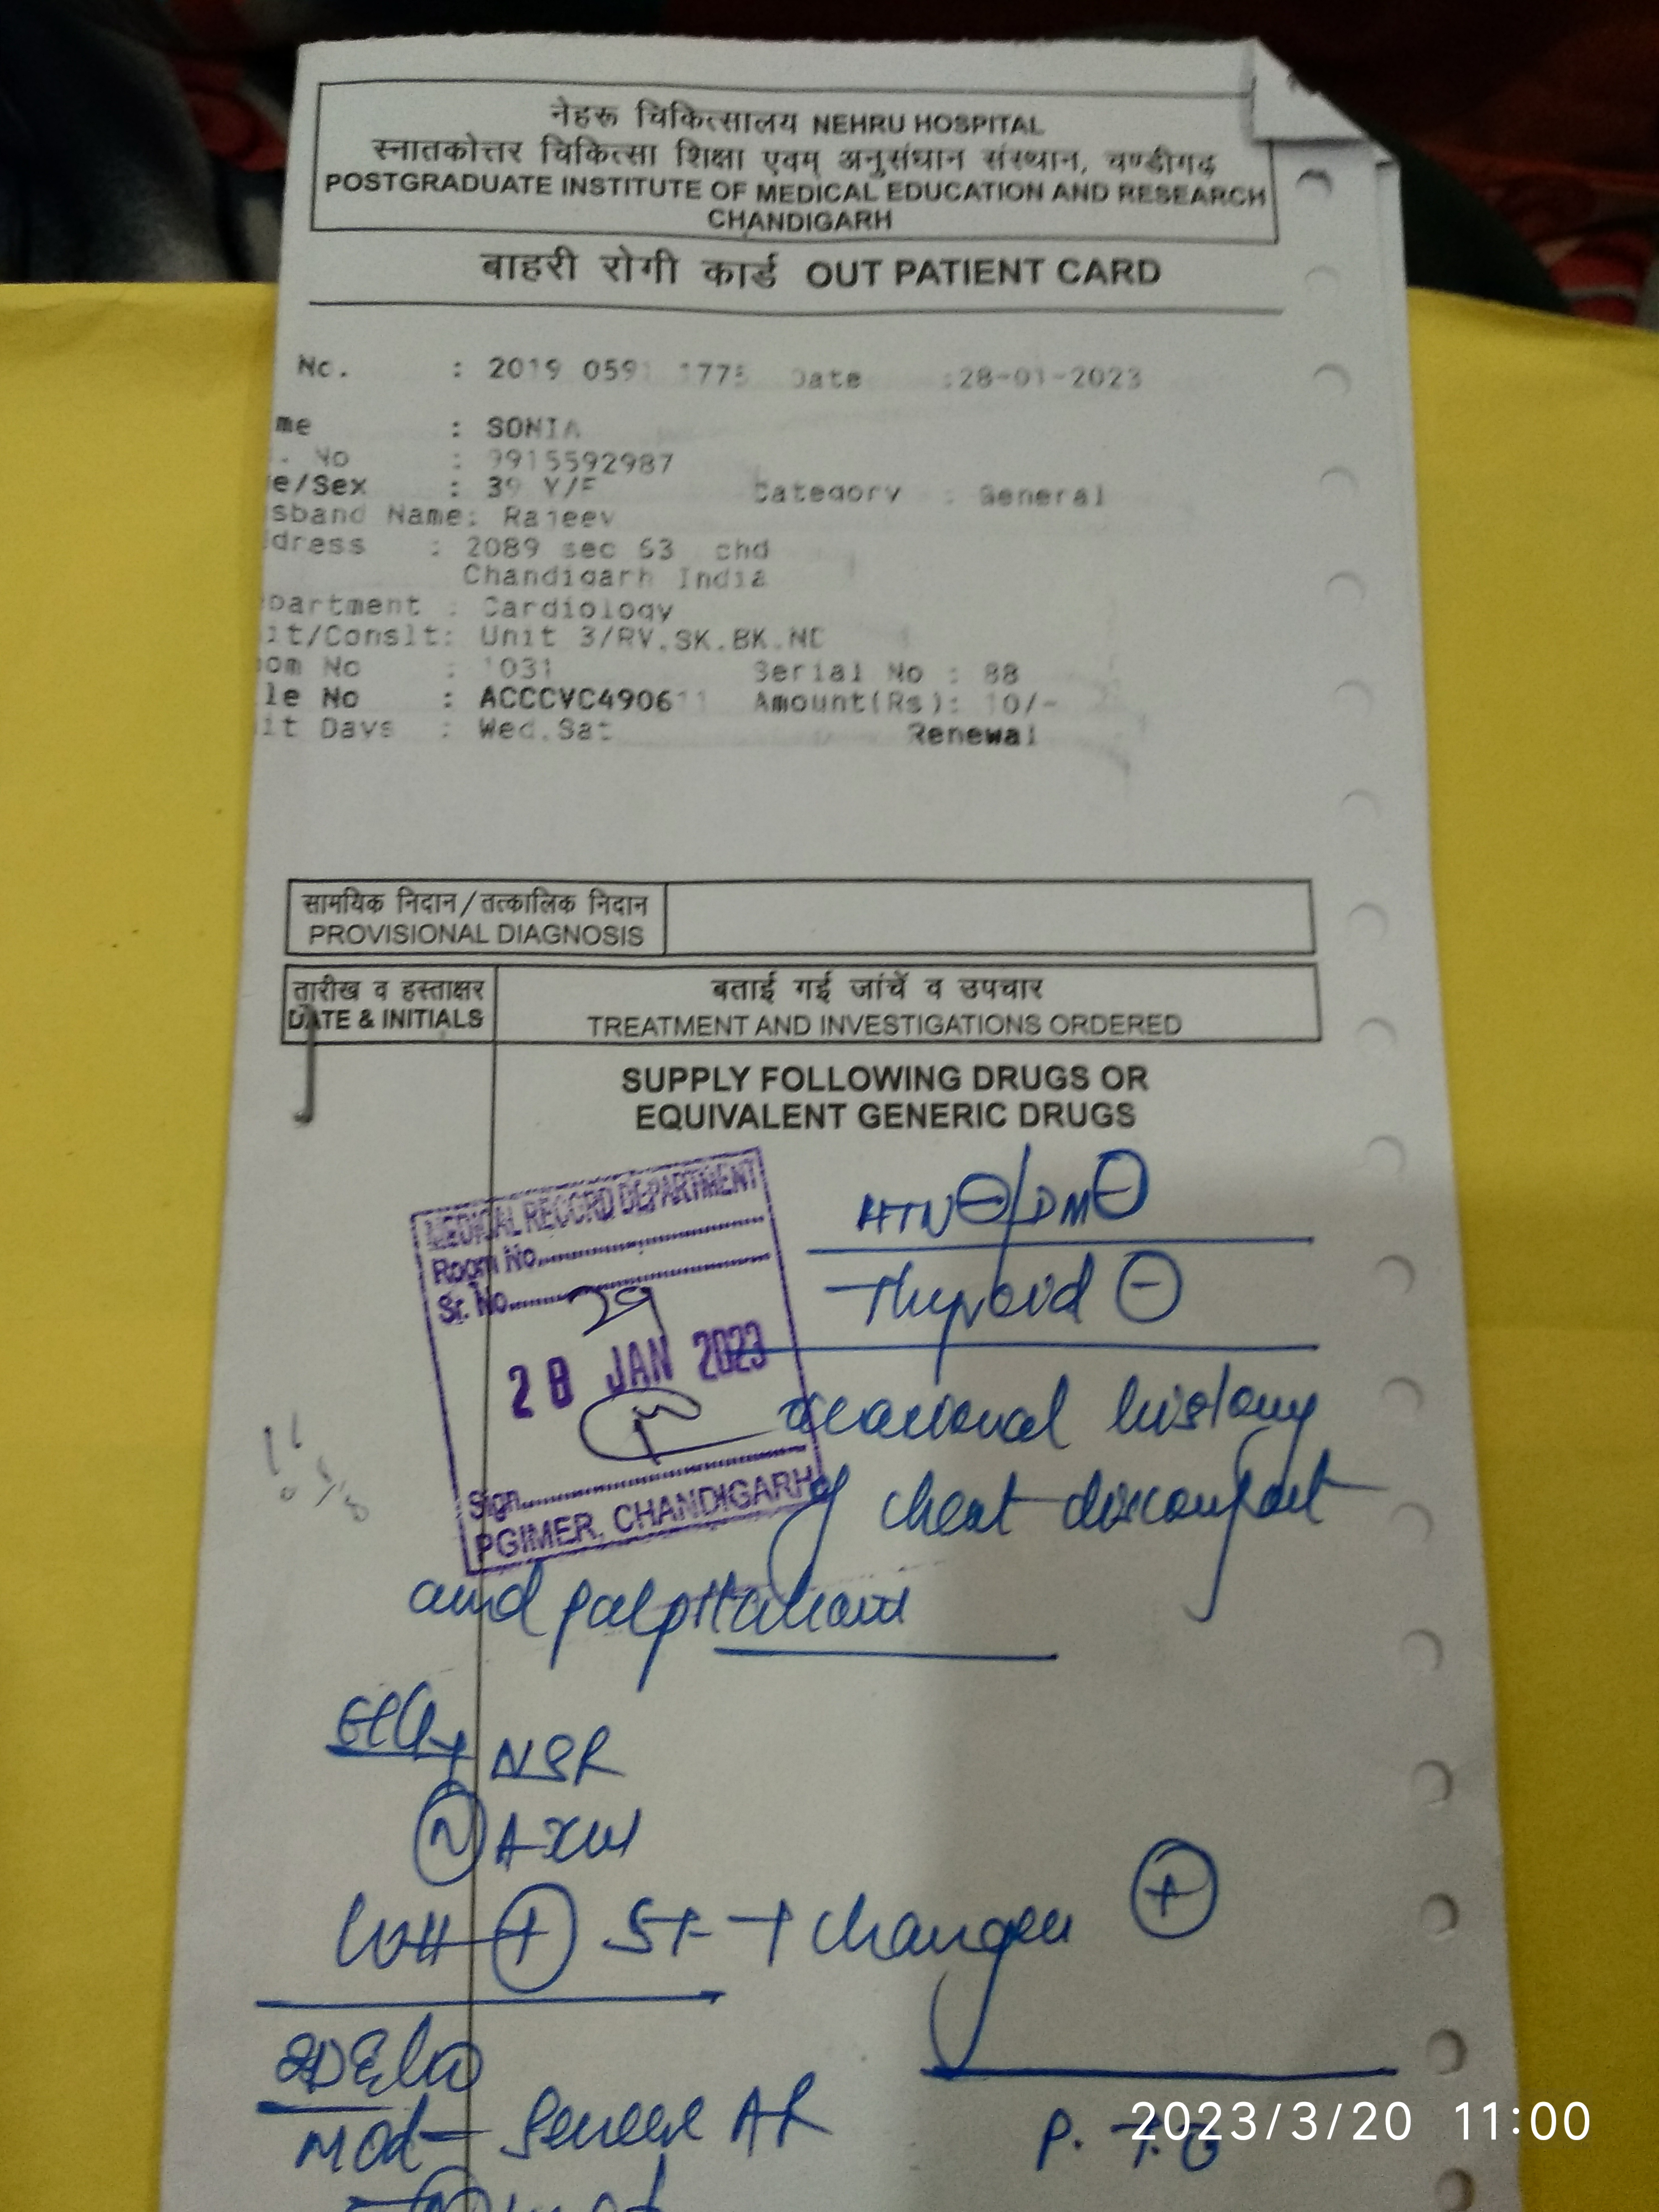 नेहरू चिकित्सालय NEHRU HOSPITAL
स्नातकोत्तर चिकित्सा शिक्षा एवम् अनुसंधान संस्थान, चण्डीगढ़
POSTGRADUATE INSTITUTE OF MEDICAL EDUCATION AND RESEARCH
CHANDIGARH
बाहरी रोगी कार्ड OUT PATIENT CARD
No. : 2019 059 177 Date :28-01-2023
me : SONIA
. No : 9915592987
e/Sex : 39 Y/F Category : General
sband Name: Rajeev
dress : 2089 sec 63 chd
Chandigarh India
partment : Cardiology
it/Conslt: Unit 3/RV.SK.BK.ND
om No : 1031 Serial No : 88
le No : ACCCVC490611 Amount(Rs): 10/-
it Days : Wed.Sat Renewal
सामयिक निदान/तत्कालिक निदान
PROVISIONAL DIAGNOSIS
तारीख व हस्ताक्षर
DATE & INITIALS
बताई गई जांचें व उपचार
TREATMENT AND INVESTIGATIONS ORDERED
SUPPLY FOLLOWING DRUGS OR
EQUIVALENT GENERIC DRUGS
MEDICAL RECORD DEPARTMENT
Room No.
Sr. No. 29
28 JAN 2023
Sign
PGIMER, CHANDIGARH
HTN⊖/DM⊖
Thyroid ⊖
occasional history
of chest discomfort
and palpitations
ECG NSR
Ⓝ Axis
LVH ⊕ ST-T changes ⊕
2D Echo
Mod - Severe AR
P.T.O
2023/3/20 11:00